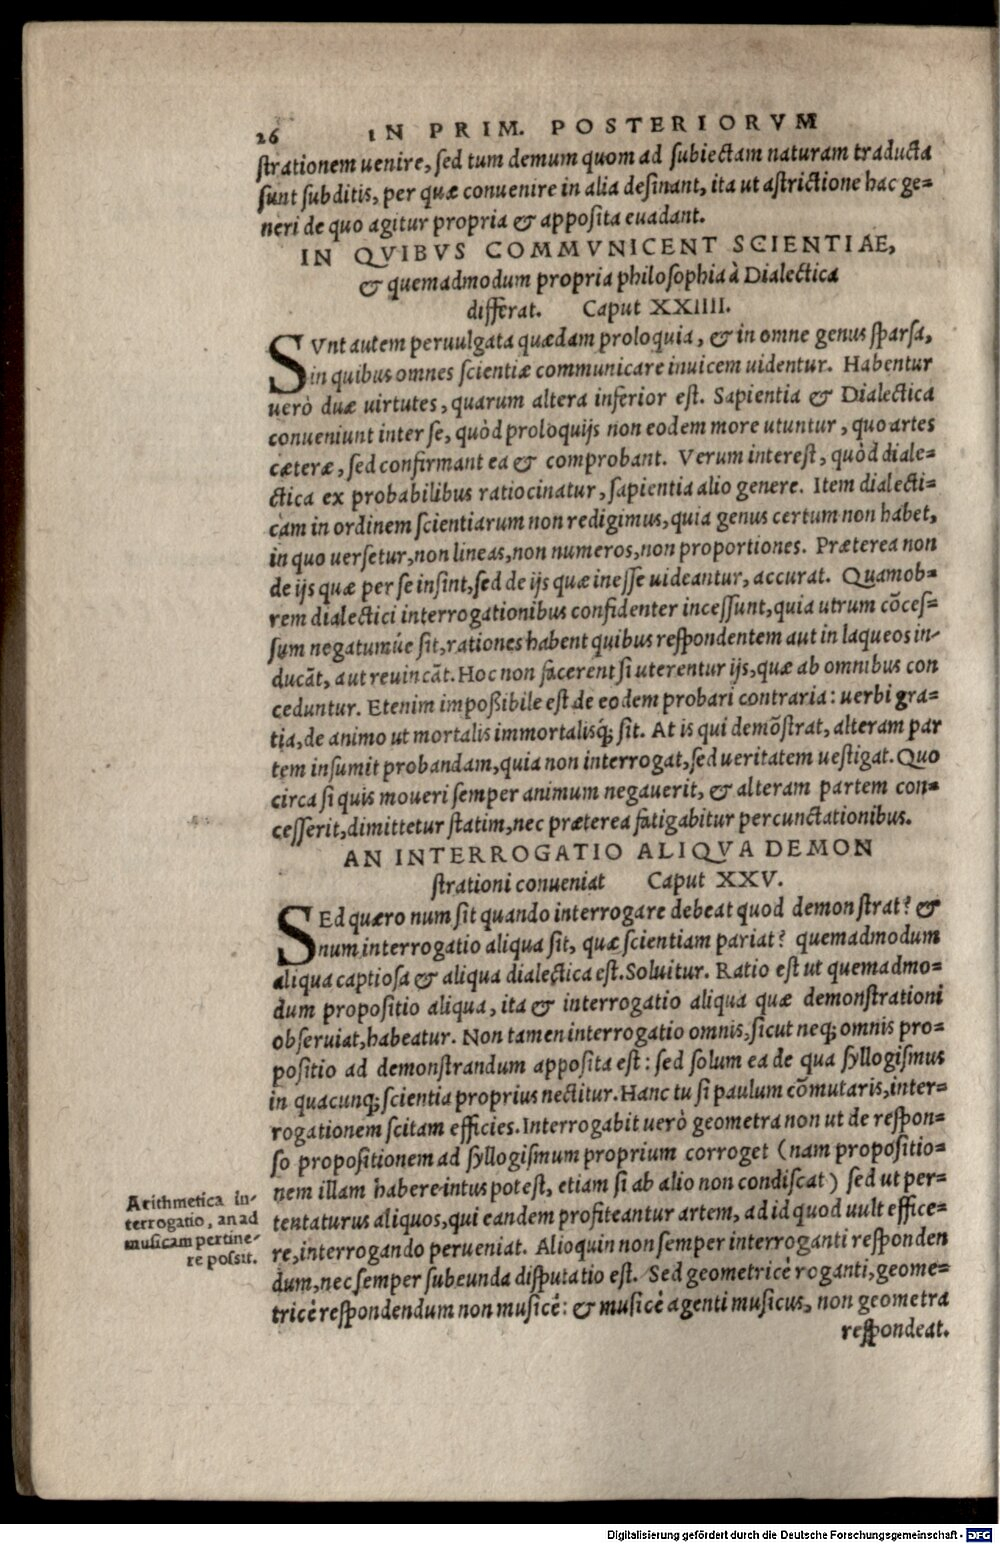 26 IN PRIM. POSTERIORVM
strationem uenire, sed tum demum quom ad subiectam naturam traducta
sunt subditis, per quæ conuenire in alia desinant, ita ut astrictione hac ge=
neri de quo agitur propria & apposita euadant.
IN QVIBVS COMMVNICENT SCIENTIAE,
& quemadmodum propria philosophia à Dialectica
differat. Caput XXIIII.
SVnt autem peruulgata quædam proloquia, & in omne genus sparsa,
in quibus omnes scientiæ communicare inuicem uidentur. Habentur
uerò duæ uirtutes, quarum altera inferior est. Sapientia & Dialectica
conueniunt inter se, quòd proloquijs non eodem more utuntur, quo artes
cæteræ, sed confirmant ea & comprobant. Verum interest, quòd diale=
ctica ex probabilibus ratiocinatur, sapientia alio genere. Item dialecti=
cam in ordinem scientiarum non redigimus, quia genus certum non habet,
in quo uersetur, non lineas, non numeros, non proportiones. Præterea non
de ijs quæ per se insint, sed de ijs quæ inesse uideantur, accurat. Quamob=
rem dialectici interrogationibus confidenter incessunt, quia utrum cōces=
sum negatumúe sit, rationes habent quibus respondentem aut in laqueos in-
ducāt, aut reuincāt. Hoc non facerent si uterentur ijs, quæ ab omnibus con
ceduntur. Etenim impoßibile est de eodem probari contraria: uerbi gra=
tia, de animo ut mortalis immortalisq; sit. At is qui demōstrat, alteram par
tem insumit probandam, quia non interrogat, sed ueritatem uestigat. Quo
circa si quis moueri semper animum negauerit, & alteram partem con=
cesserit, dimittetur statim, nec præterea fatigabitur percunctationibus.
AN INTERROGATIO ALIQVA DEMON
strationi conueniat Caput XXV.
SEd quæro num sit quando interrogare debeat quod demonstrat? &
num interrogatio aliqua sit, quæ scientiam pariat? quemadmodum
aliqua captiosa & aliqua dialectica est. Soluitur. Ratio est ut quemadmo=
dum propositio aliqua, ita & interrogatio aliqua quæ demonstrationi
obseruiat, habeatur. Non tamen interrogatio omnis, sicut neq; omnis pro=
positio ad demonstrandum apposita est: sed solum ea de qua syllogismus
in quacunq; scientia proprius nectitur. Hanc tu si paulum cōmutaris, inter=
rogationem scitam efficies. Interrogabit uerò geometra non ut de respon=
so propositionem ad syllogismum proprium corroget (nam propositio=
nem illam habere intus potest, etiam si ab alio non condiscat) sed ut per=
tentaturus aliquos, qui eandem profiteantur artem, ad id quod uult effice=
re, interrogando perueniat. Alioquin non semper interroganti responden
dum, nec semper subeunda disputatio est. Sed geometricè roganti, geome=
tricè respondendum non musicè: & musicè agenti musicus, non geometra
respondeat.
Arithmetica in-
terrogatio, an ad
musicam pertine-
re possit.
Digitalisierung gefördert durch die Deutsche Forschungsgemeinschaft - DFG